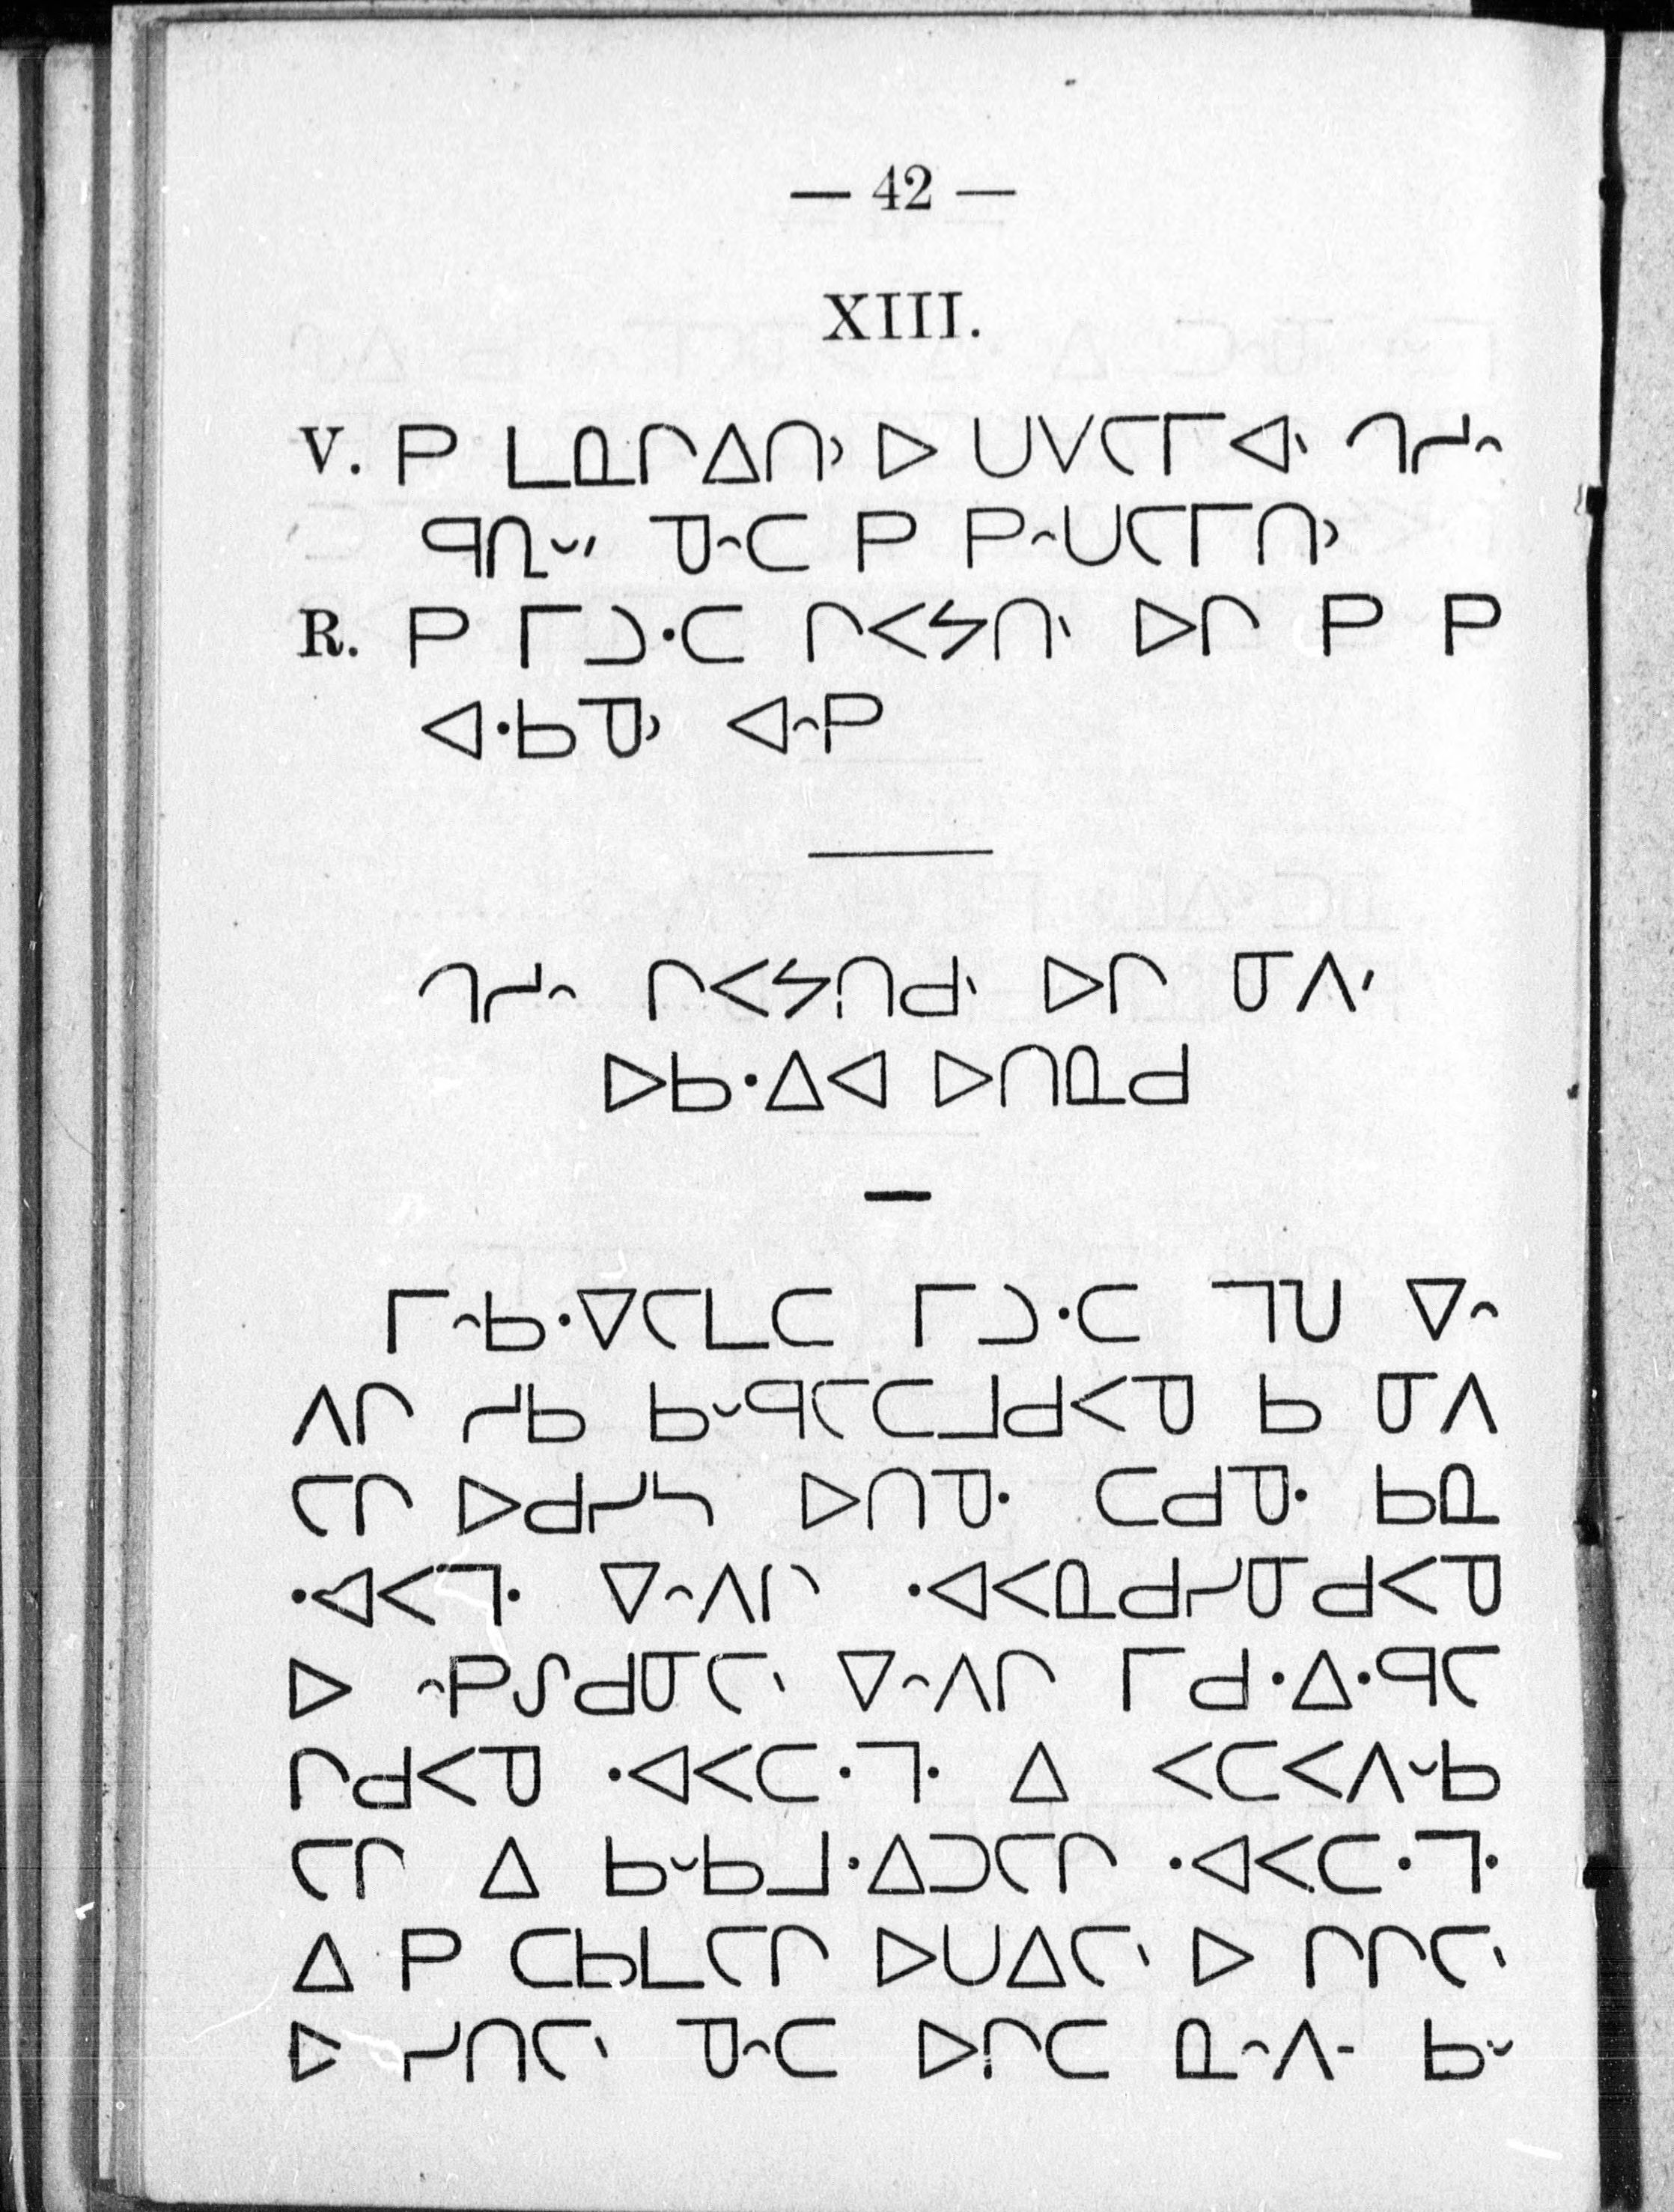 — 42 —
XIII.
V. ᑭ ᒪᓇᒋᐃᑎᐣ ᐅ ᑌᐯᑕᒥᐊᐠ ᒉᓱᐢ
ᑫᘂᐡᐟ ᓀᐢᑕ ᑭ ᑭᐢᑌᑕᒥᑎᐣ
R. ᑭ ᒥᑐᐧᑕ ᒋᐸᔕᑎᐠ ᐅᒋ ᑭ ᑭ
ᐊᐧᑲᓀᐣ ᐊᐢᑭ
ᒉᓱᐢ ᒋᐸᔕᑎᑯᐠ ᐅᒋ ᓂᐱᐟ
ᐅᑲᐧᐃᐊ ᐅᑎᓇᑯ
ᒥᐢᑲᐧᐁᑕᒪᑕ ᒥᑐᐧᑕ ᒣᑌ ᐁᐢ
ᐱᒋ ᓱᑲ ᑲᐡᑫᑕᑕᒧᑯᐸᓀ ᑲ ᓂᐱ
ᑕᒋ ᐅᑯᓯᓴ ᐅᑎᓀᐧ ᑕᑯᓀᐧ ᑲᓇ
ᐧᐊᐸᒣᐧ ᐁᐢᐱᒋ ᐧᐊᐸᓇᑯᓯᓂᑯᐸᓀ
ᐅ ᐢᑭᔑᑯᓂᑕᐠ ᐁᐢᐱᒋ ᒥᑯᐧᐃᐧᑫᑕ
ᒋᑯᐸᓀ ᐧᐊᐸᑕᐧᒣᐧ ᐃ ᐸᑕᐸᐱᐡᑲ
ᑕᒋ ᐃ ᑲᐡᑲᒧᐧᐃᑐᑕᒋ ᐧᐊᐸᑕᐧᒣᐧ
ᐃ ᑭ ᑕᑲᒪᑕᒋ ᐅᑌᐃᑕᐠ ᐅ ᒋᒋᑕᐠ
ᐅ ᓯᑎᑕᐠ ᓀᐢᑕ ᐅᒋᑕ ᓇᐢᐱᐨ ᑲᐡ